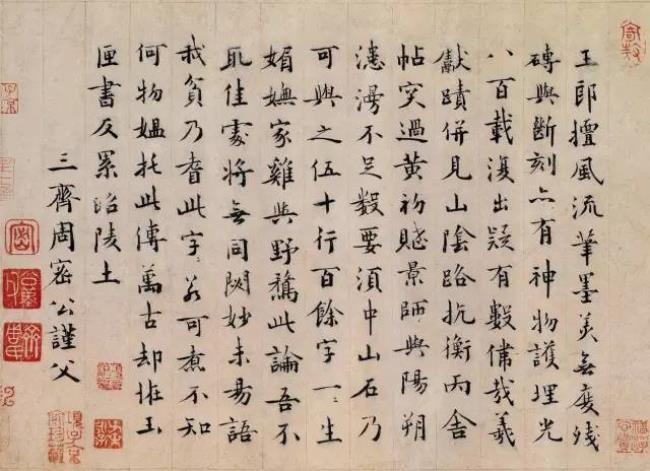 王郎擅風流筆墨美無度殘
磚與斷刻亦有神物護埋光
八百載復出疑有數偉哉羲
獻蹟併見山陰路抗衡丙舍
帖突過黃初賦景師與陽朔
漶漫不足數要須中山石乃
可與之伍十行百餘字一〻生
媚嫵家雞與野鶩此論吾不
取佳處將無同閟妙未易語
我貧乃耆此字若可煮不知
何物媼托此傳萬古却恠玉
匣書反累昭陵土
三齊周密公謹父